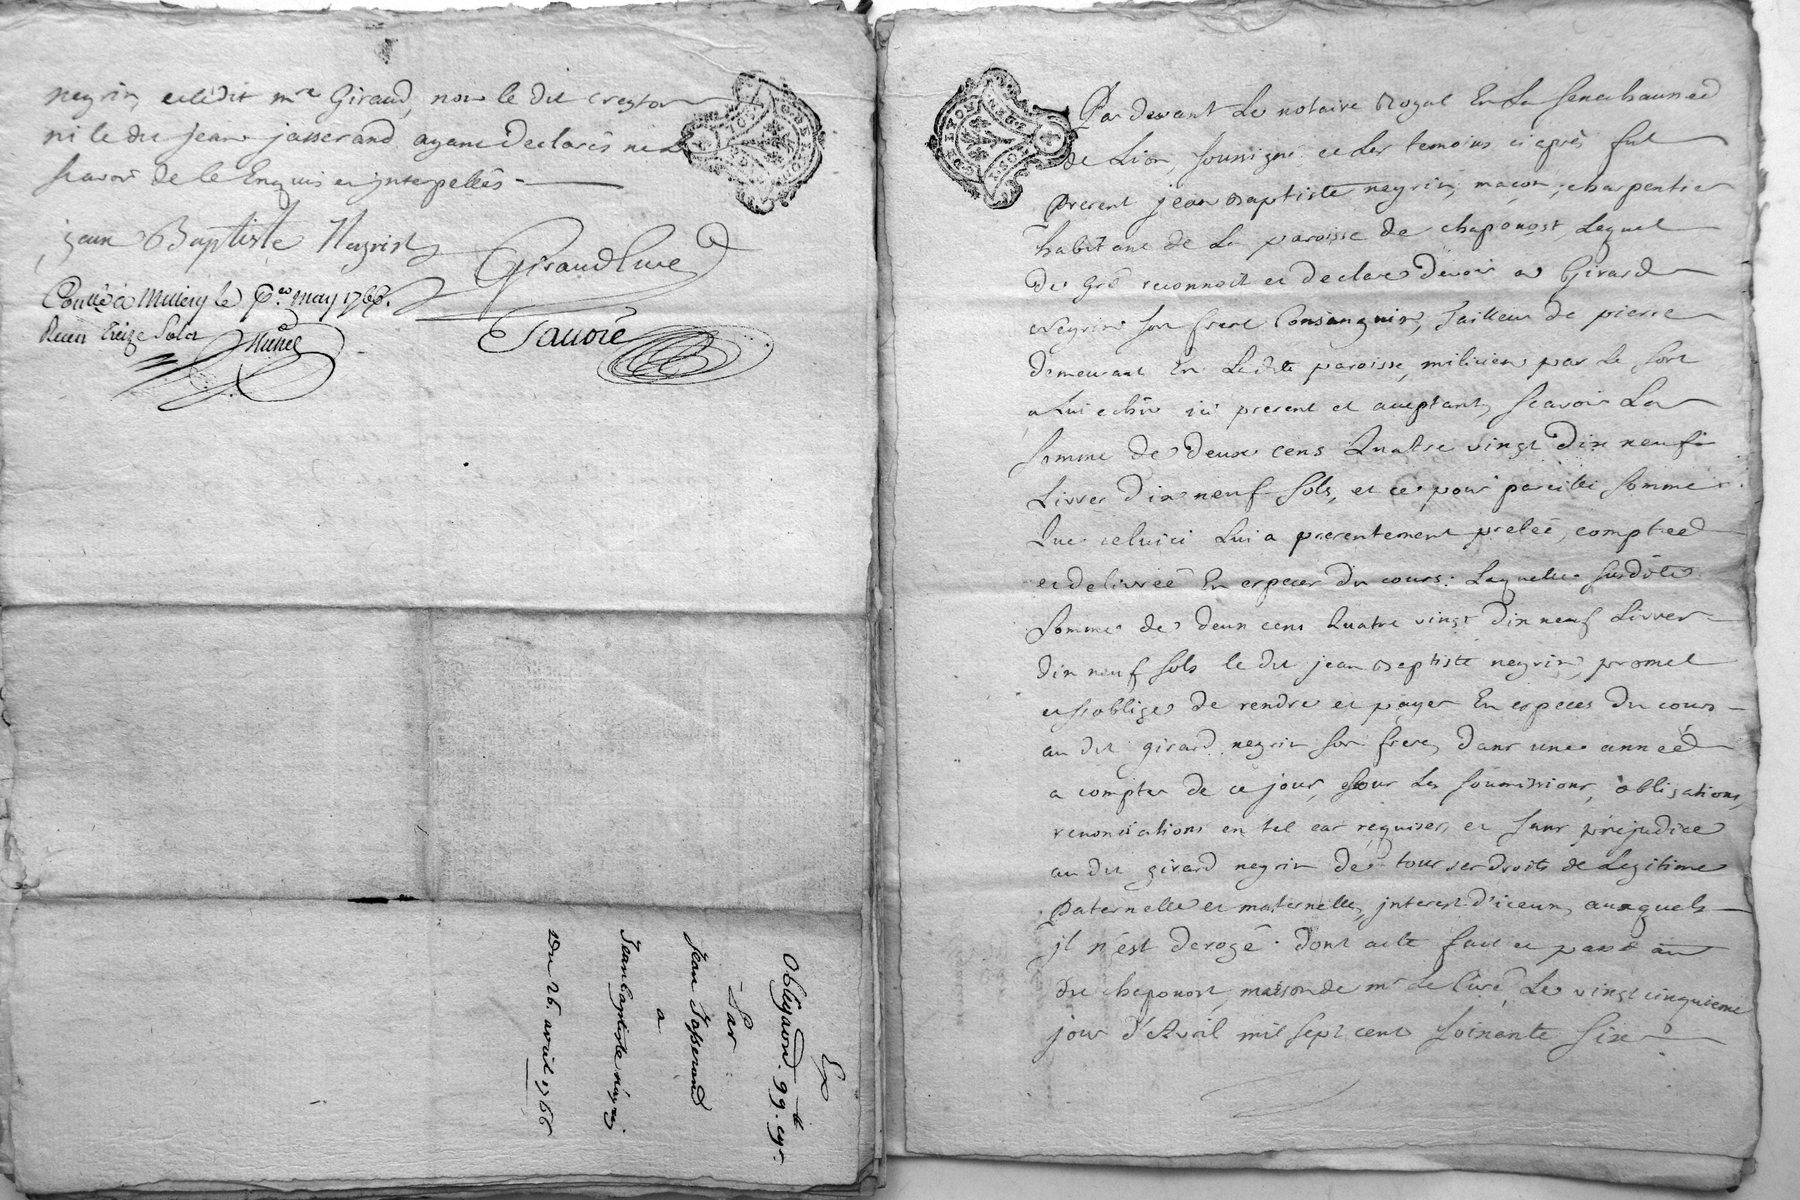 negrin, et ledit mre Giraud, non le dit creyton
ni le dit jean jasserand ayant declarés ne
scavoir de le Enquis et jnterpellés
jean Baptiste Nagrin
Giraud Cure
Conllé a Millery le 6.e may 1766.
Receu treize Sols
Sauoie
Ex
Obligaon. 99.
Par
Jean Jasserand
a
Jean baptiste nagrin
Du 26 avril 1766
GEN. DE LYON
Par devant Le notaire Royal En La senechaussed
de Lion, soussigné et Les temoins ci après fut
present jean Baptiste negrin, maçon, charpentier
habitant de La paroisse de chaponost Lequel
de gré reconnoit et declare devoir a Girard
Negrin son frere Consanguin, Tailleur de pierre
demeurant En Ladite paroisse, milicien par Le sort
a Lui echu ici present et acceptant, scavoir La
somme de deux cens Quatre vingt dix neuf
Livres dix neuf sols, et ce pour pareille somme
Que celuici Lui a presentement pretée, comptée
et delivreé En especes du cours. Laquelle susdite
Somme de deux cens Quatre vingt dix neuf Livres
dix neuf sols le dit jean Baptiste negrin, promet
et s'oblige de rendre et payer En especes du cours
au dit girard negrin son frere, dans une anneé
a compter de ce jour, Pour Les soumissions, obligations,
renonciations en tel cas requises, et sans prejudice
au dit girard negrin de tous ses droits de Legitime
Paternelle et maternelle, jnterest d'iceux, auxquels
jl n'est derogé. dont acte fait et passé au
dit chaponost, maison de mr de Curé, Le vingt cinquieme
jour d'Avril mil sept cent soixante six